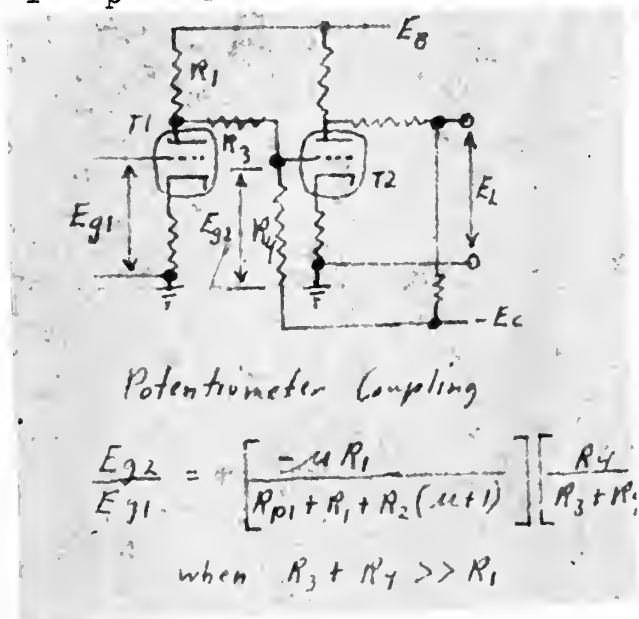 E_B
R_1
T1
R_3
T2
E_g1
E_g2
R_4
E_L
-E_c
Potentiometer Coupling
E_g2 / E_g1 = [ -μ R_1 / R_p1 + R_1 + R_2 (μ+1) ] [ R_4 / R_3 + R
when R_3 + R_4 >> R_1